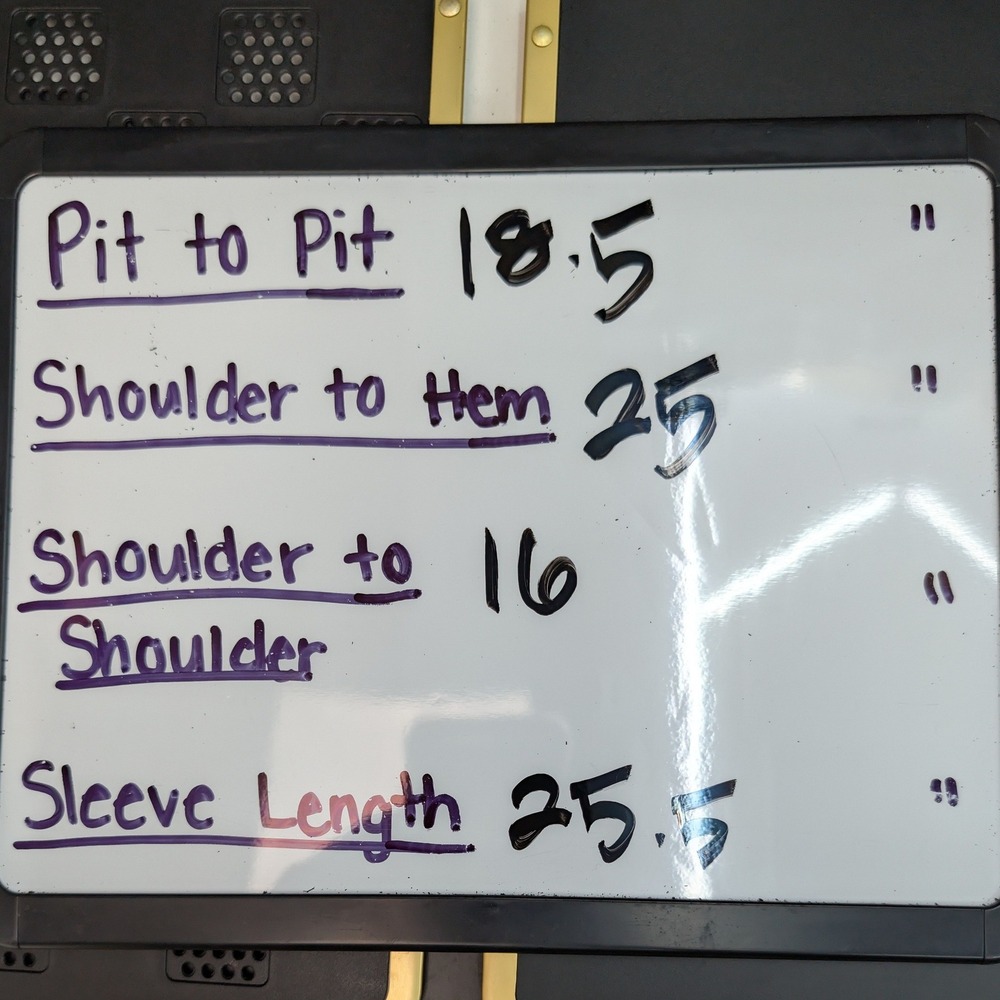 Pit to Pit 18.5 "
Shoulder to Hem 25 "
Shoulder to 16 "
Shoulder
Sleeve Length 25.5 "